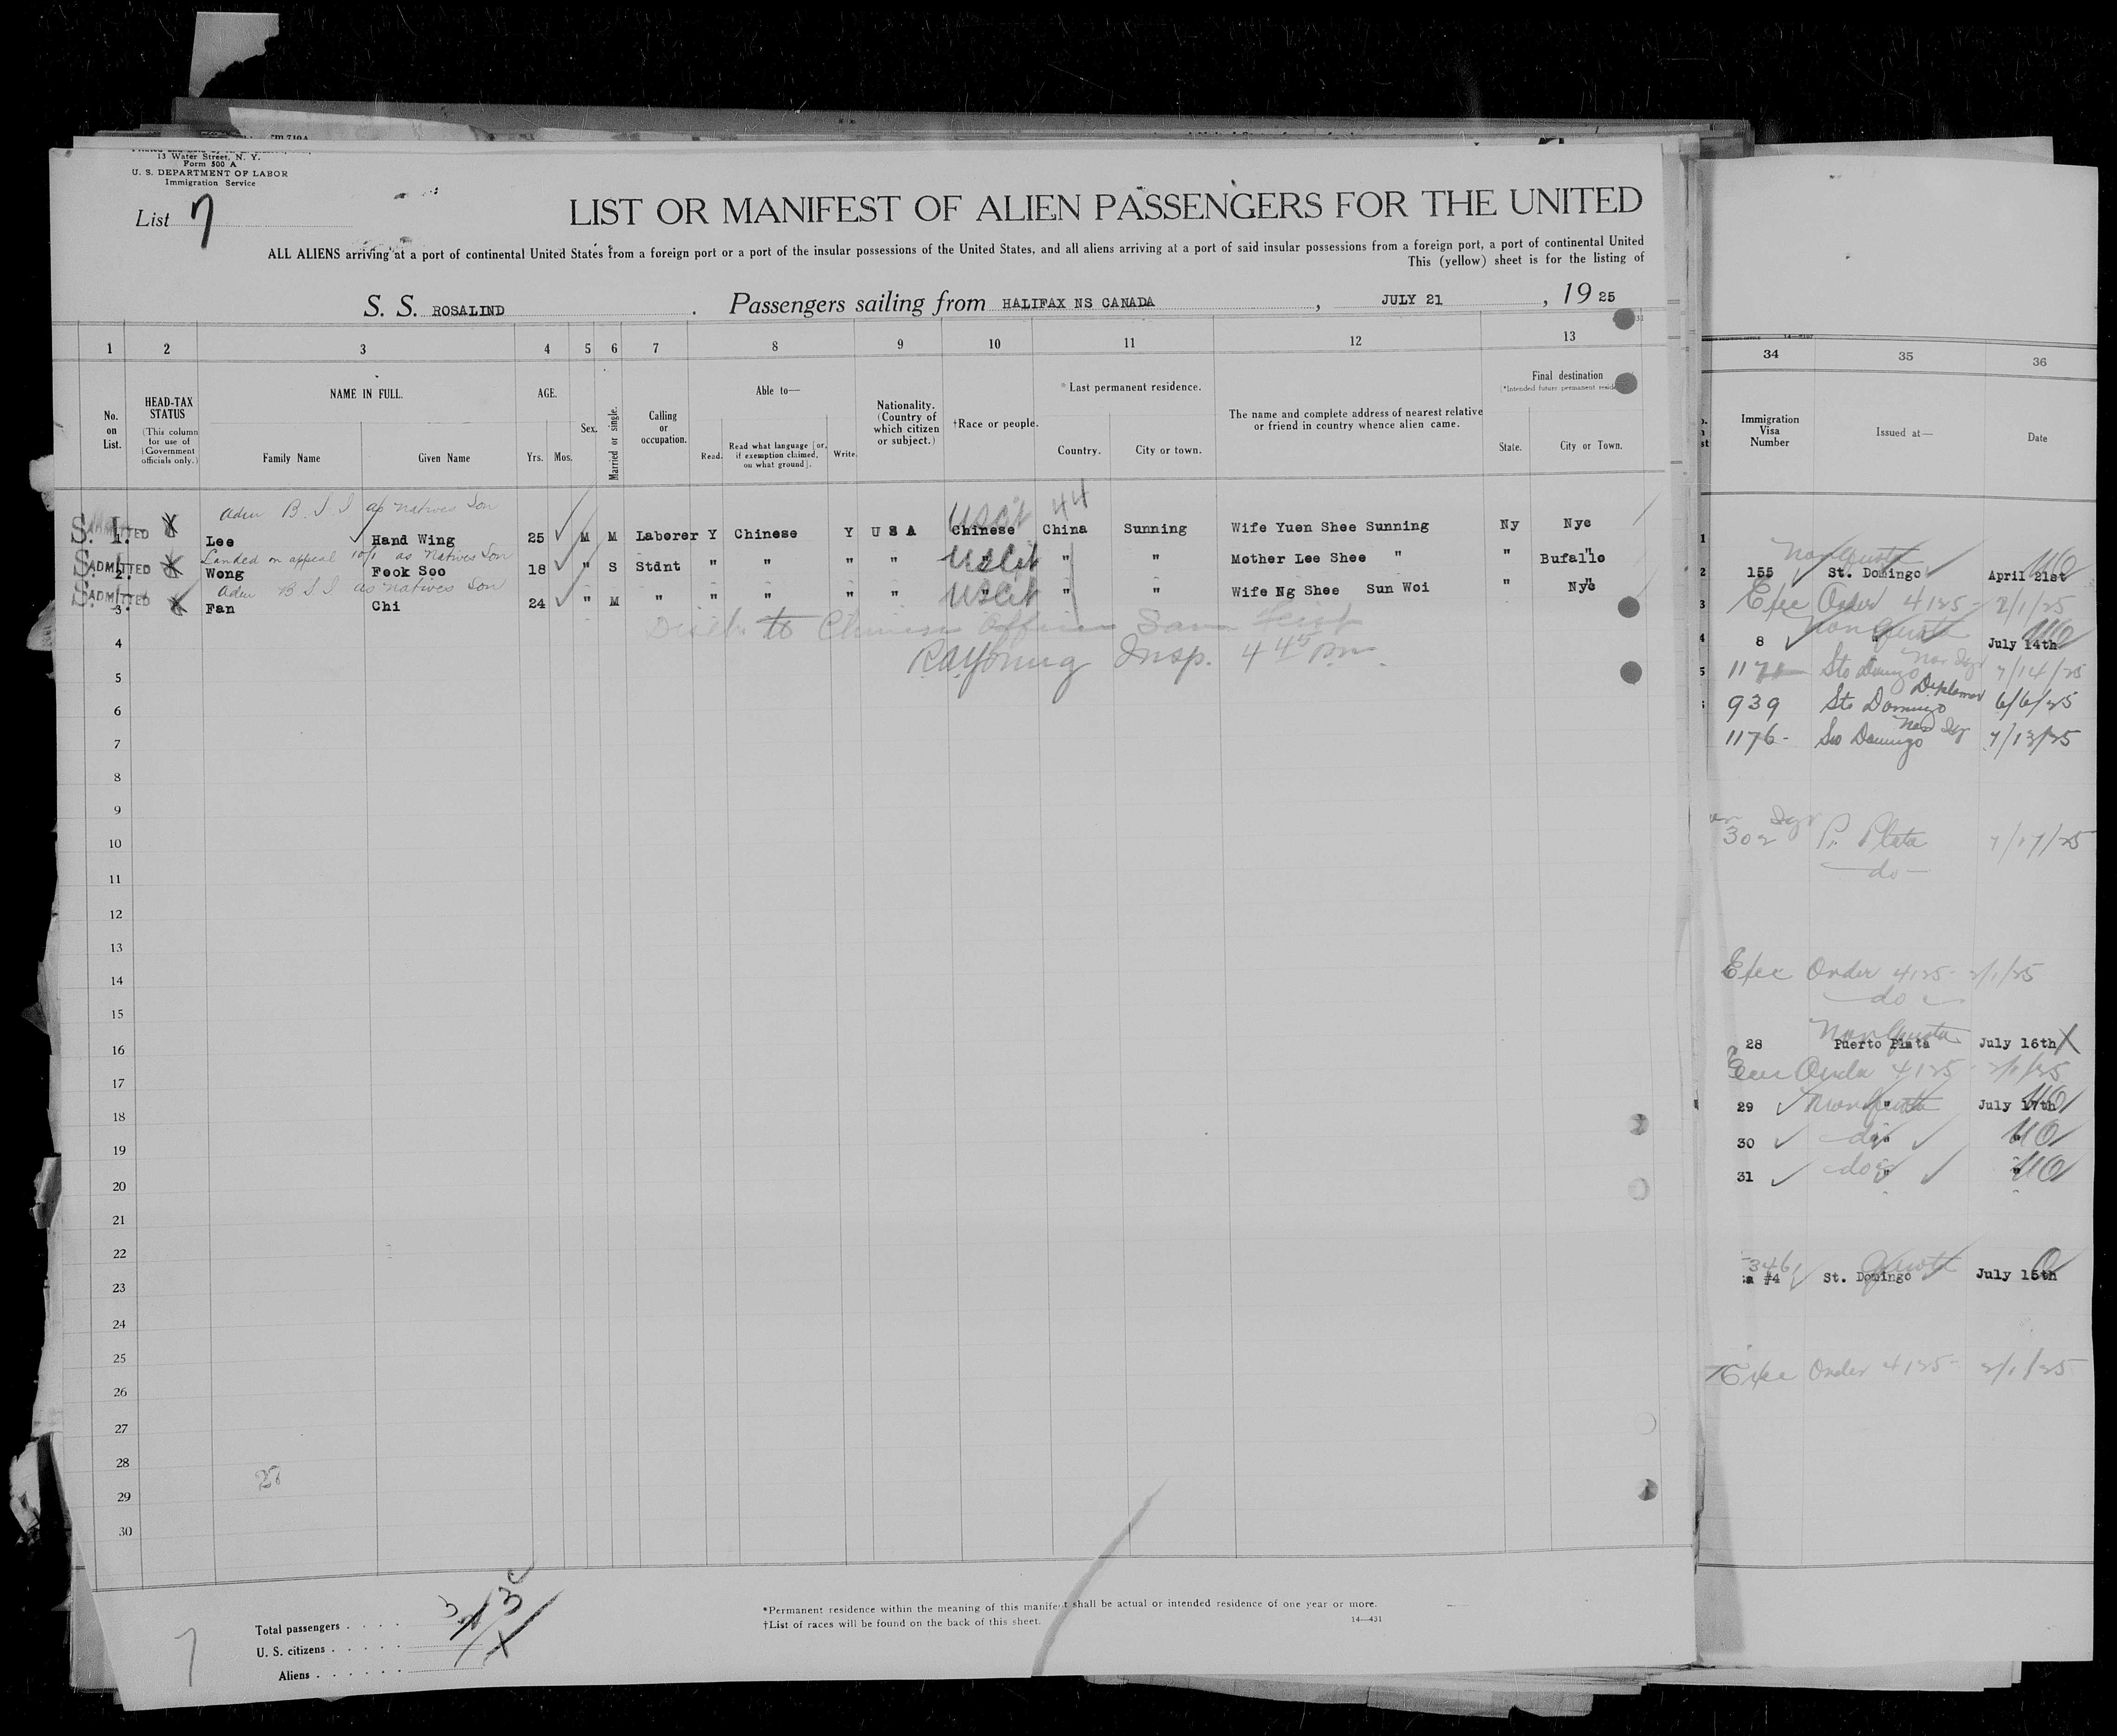 13 Water Street, N. Y.
Form 500 A
U. S. DEPARTMENT OF LABOR
Immigration Service
List 7
LIST OR MANIFEST OF ALIEN PASSENGERS FOR THE UNITED
ALL ALIENS arriving at a port of continental United States from a foreign port or a port of the insular possessions of the United States, and all aliens arriving at a port of said insular possessions from a foreign port, a port of continental United
This (yellow) sheet is for the listing of
S. S. ROSALIND. Passengers sailing from HALIFAX NS CANADA, JULY 21, 19 25
1 2 3 4 5 6 7 8 9 10 11 12 13
No. on List.
HEAD-TAX STATUS
(This column for use of Government officials only.)
NAME IN FULL.
Family Name Given Name
AGE.
Yrs. Mos.
Sex.
Married or single.
Calling or occupation.
Able to—
Read. Read what language [or, if exemption claimed, on what ground]. Write.
Nationality. (Country of which citizen or subject.)
†Race or people.
*Last permanent residence.
Country. City or town.
The name and complete address of nearest relative or friend in country whence alien came.
Final destination
State. City or Town.
Adm B. S. I as natives Son
ADMITTED 1 Lee Hand Wing 25 M M Laborer Y Chinese Y U S A Chinese USCit China 44 Sunning Wife Yuen Shee Sunning Ny Nyc
Landed on appeal 10/1 as Natives Son
ADMITTED 2 Wong Fook Soo 18 " S Stdnt " " " " " USCit " " Mother Lee Shee " " Bufallo
Adm B S I as natives Son
ADMITTED 3 Fan Chi 24 " M " " " " " " USCit " " Wife Ng Shee Sun Woi " Nyc
Disch. to Chinese Officer Sam
RAYoung Insp. 4 45 Pm.
4
5
6
7
8
9
10
11
12
13
14
15
16
17
18
19
20
21
22
23
24
25
26
27
28
29
30
Total passengers . . . . 3
U. S. citizens . . . . .
Aliens . . . . . .
7
*Permanent residence within the meaning of this manifest shall be actual or intended residence of one year or more.
†List of races will be found on the back of this sheet.
14—431
34 35 36
Immigration Visa Number
Issued at—
Date
1
Non Quota
2 155 St. Domingo April 21st
3 Exec Order 4125- 2/1/25
Non Quota
4 8 " July 14th
5 Sto Domingo 7/14/25
Diplomat
939 Sto Domingo 6/6/25
1176- Sto Domingo 7/13/25
302 P. Plata 7/17/25
do
Exec Order 4125- 2/1/25
do
Non Quota
28 Puerto Plata July 16th
Exec Order 4125- 2/1/25
29 Non Quota " July 17th
30 do "
31 do "
346
#4 St. Domingo Quota July 15th
Exec Order 4125- 2/1/25